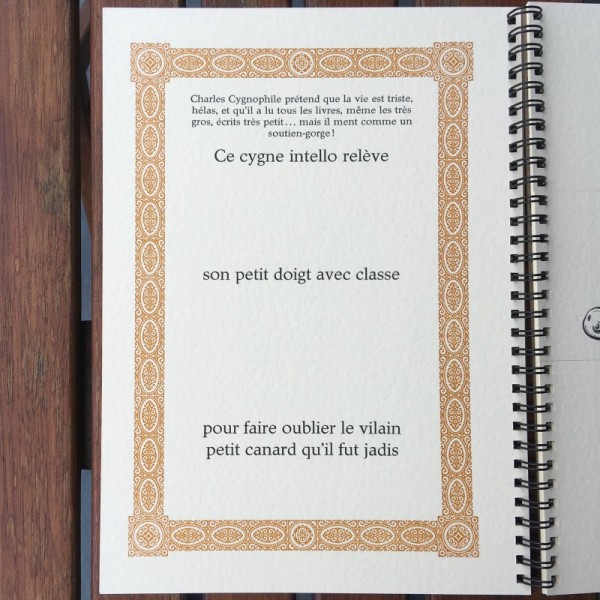 Charles Cygnophile prétend que la vie est triste,
hélas, et qu'il a lu tous les livres, même les très
gros, écrits très petit... mais il ment comme un
soutien-gorge !
Ce cygne intello relève
son petit doigt avec classe
pour faire oublier le vilain
petit canard qu'il fut jadis